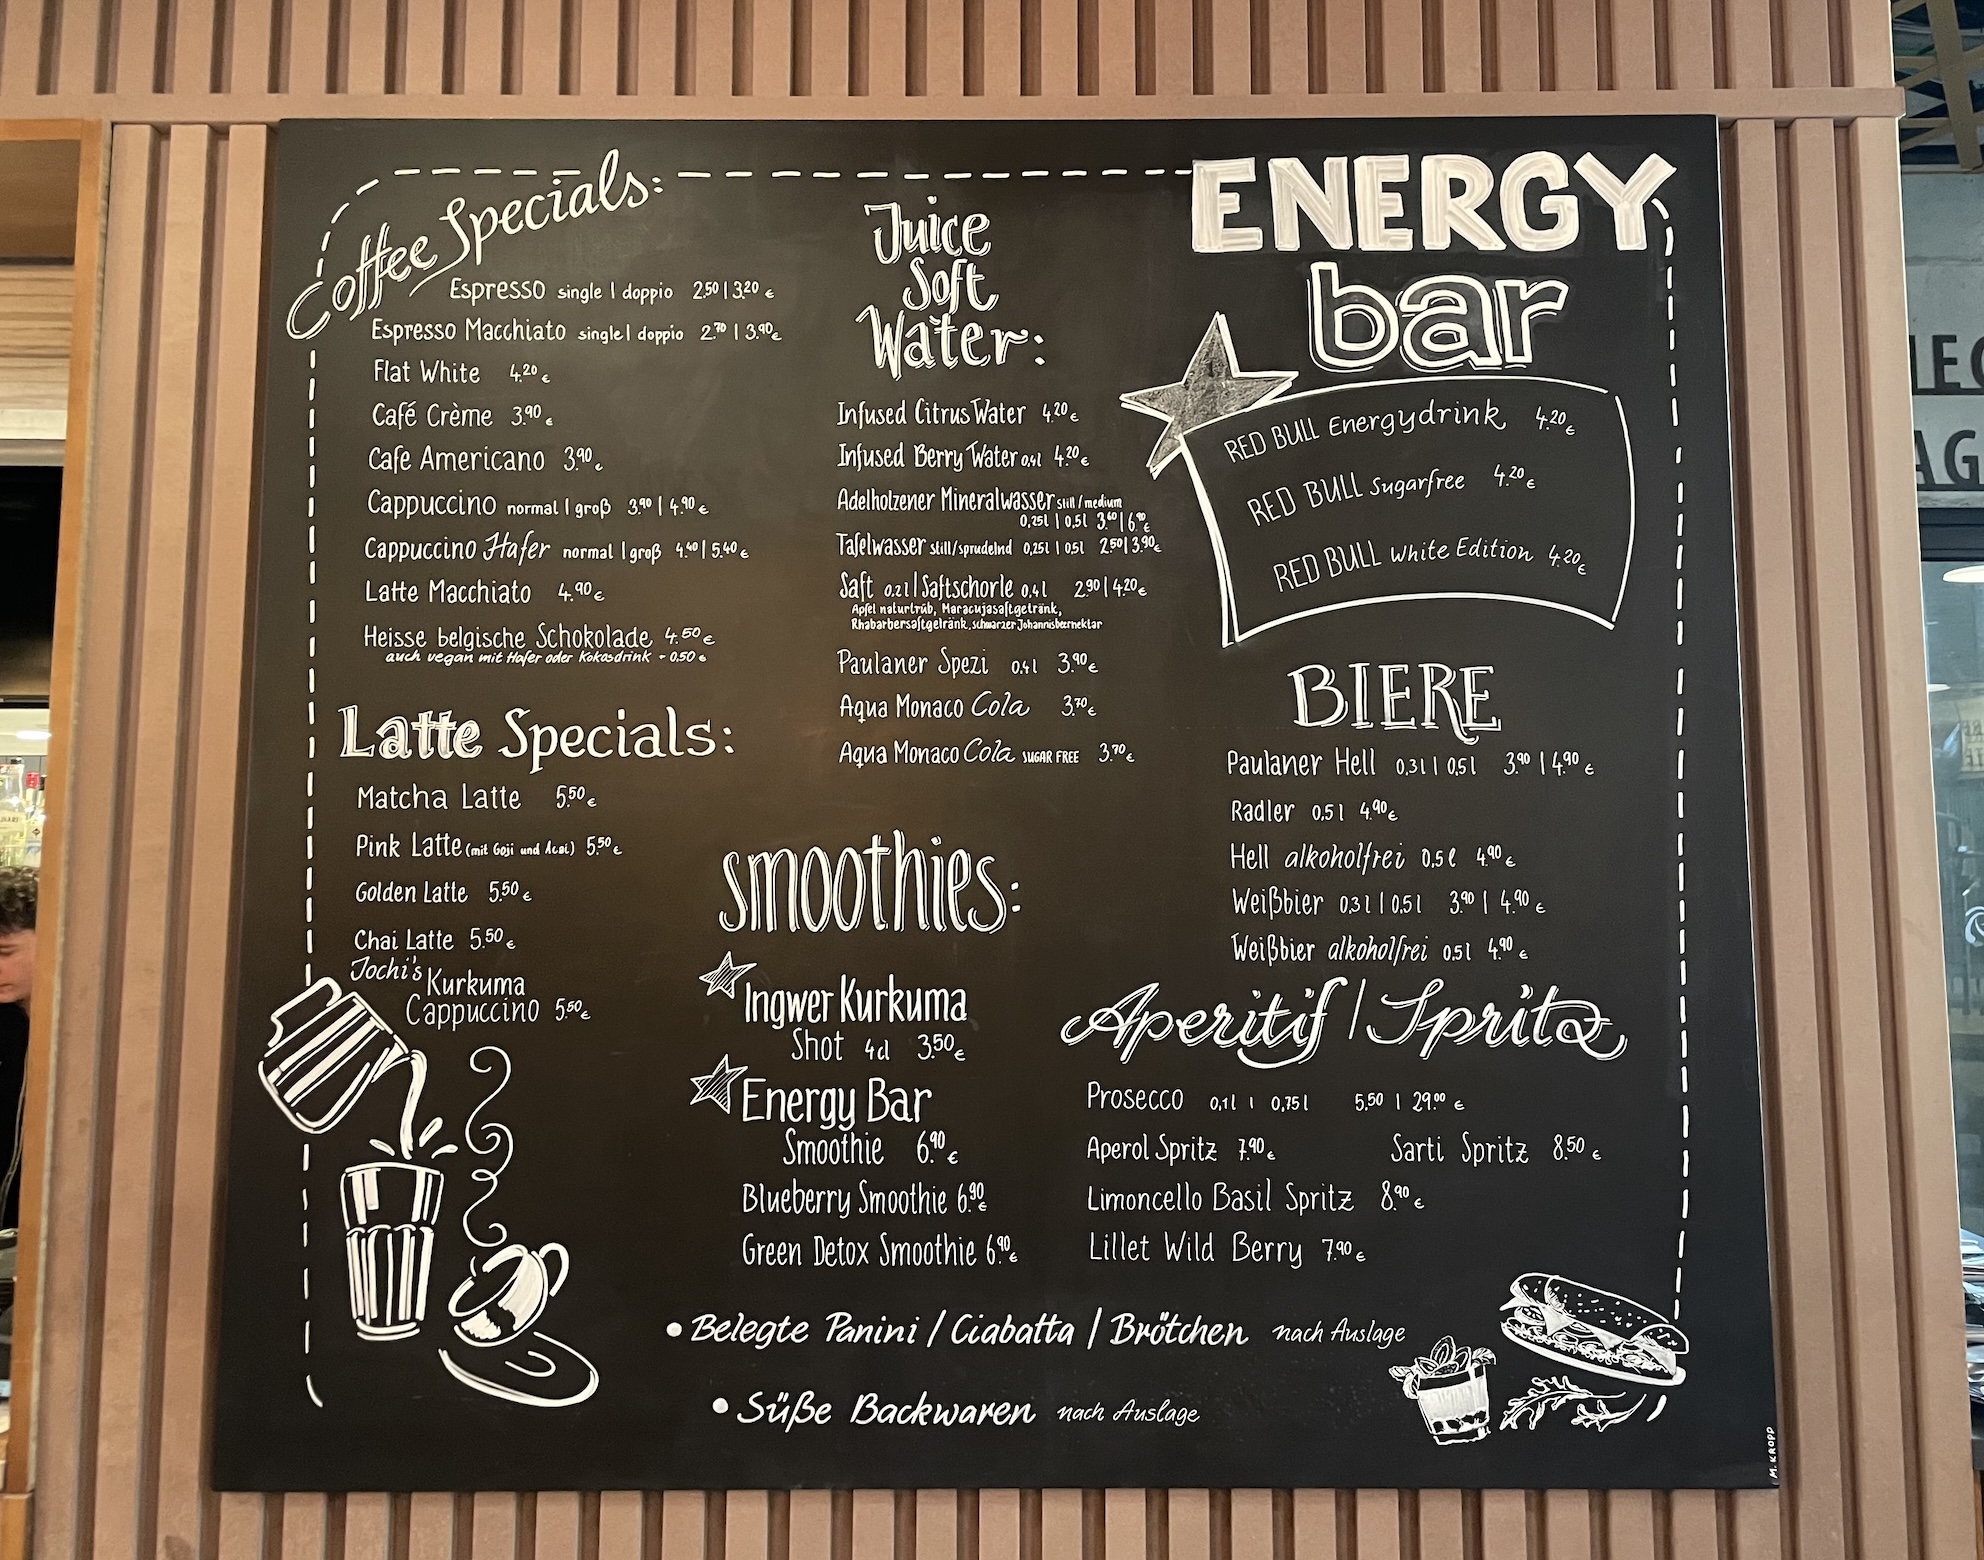 Coffee Specials:
Espresso single | doppio 2.50 | 3.20 €
Espresso Macchiato single | doppio 2.70 | 3.90 €
Flat White 4.20 €
Café Crème 3.90 €
Cafe Americano 3.90 €
Cappuccino normal | groß 3.90 | 4.90 €
Cappuccino Hafer normal | groß 4.40 | 5.40 €
Latte Macchiato 4.90 €
Heisse belgische Schokolade 4.50 €
auch vegan mit Hafer oder Kokosdrink + 0.50 €
Latte Specials:
Matcha Latte 5.50 €
Pink Latte (mit Goji und Acai) 5.50 €
Golden Latte 5.50 €
Chai Latte 5.50 €
Jochi's Kurkuma
Cappuccino 5.50 €
Juice
Soft
Water:
Infused Citrus Water 4.20 €
Infused Berry Water 0,4l 4.20 €
Adelholzener Mineralwasser still / medium
0,25l | 0,5l 3.60 | 6.90 €
Tafelwasser still/sprudelnd 0,25l | 0,5l 2.50 | 3.90 €
Saft 0.2l | Saftschorle 0,4l 2.90 | 4.20 €
Apfel naturtrüb, Maracujasaftgetränk,
Rhabarbersaftgetränk, schwarzer Johannisbeernektar
Paulaner Spezi 0,4l 3.90 €
Aqua Monaco Cola 3.70 €
Aqua Monaco Cola SUGAR FREE 3.70 €
smoothies:
Ingwer Kurkuma
Shot 4cl 3.50 €
Energy Bar
Smoothie 6.90 €
Blueberry Smoothie 6.90 €
Green Detox Smoothie 6.90 €
ENERGY
bar
RED BULL Energydrink 4.20 €
RED BULL Sugarfree 4.20 €
RED BULL White Edition 4.20 €
BIERE
Paulaner Hell 0,3l | 0,5l 3.90 | 4.90 €
Radler 0,5l 4.90 €
Hell alkoholfrei 0,5l 4.90 €
Weißbier 0,3l | 0,5l 3.90 | 4.90 €
Weißbier alkoholfrei 0,5l 4.90 €
Aperitif | Spritz
Prosecco 0,1l | 0,75l 5.50 | 29.00 €
Aperol Spritz 7.90 € Sarti Spritz 8.50 €
Limoncello Basil Spritz 8.90 €
Lillet Wild Berry 7.90 €
• Belegte Panini / Ciabatta / Brötchen nach Auslage
• Süße Backwaren nach Auslage
M. KROPP